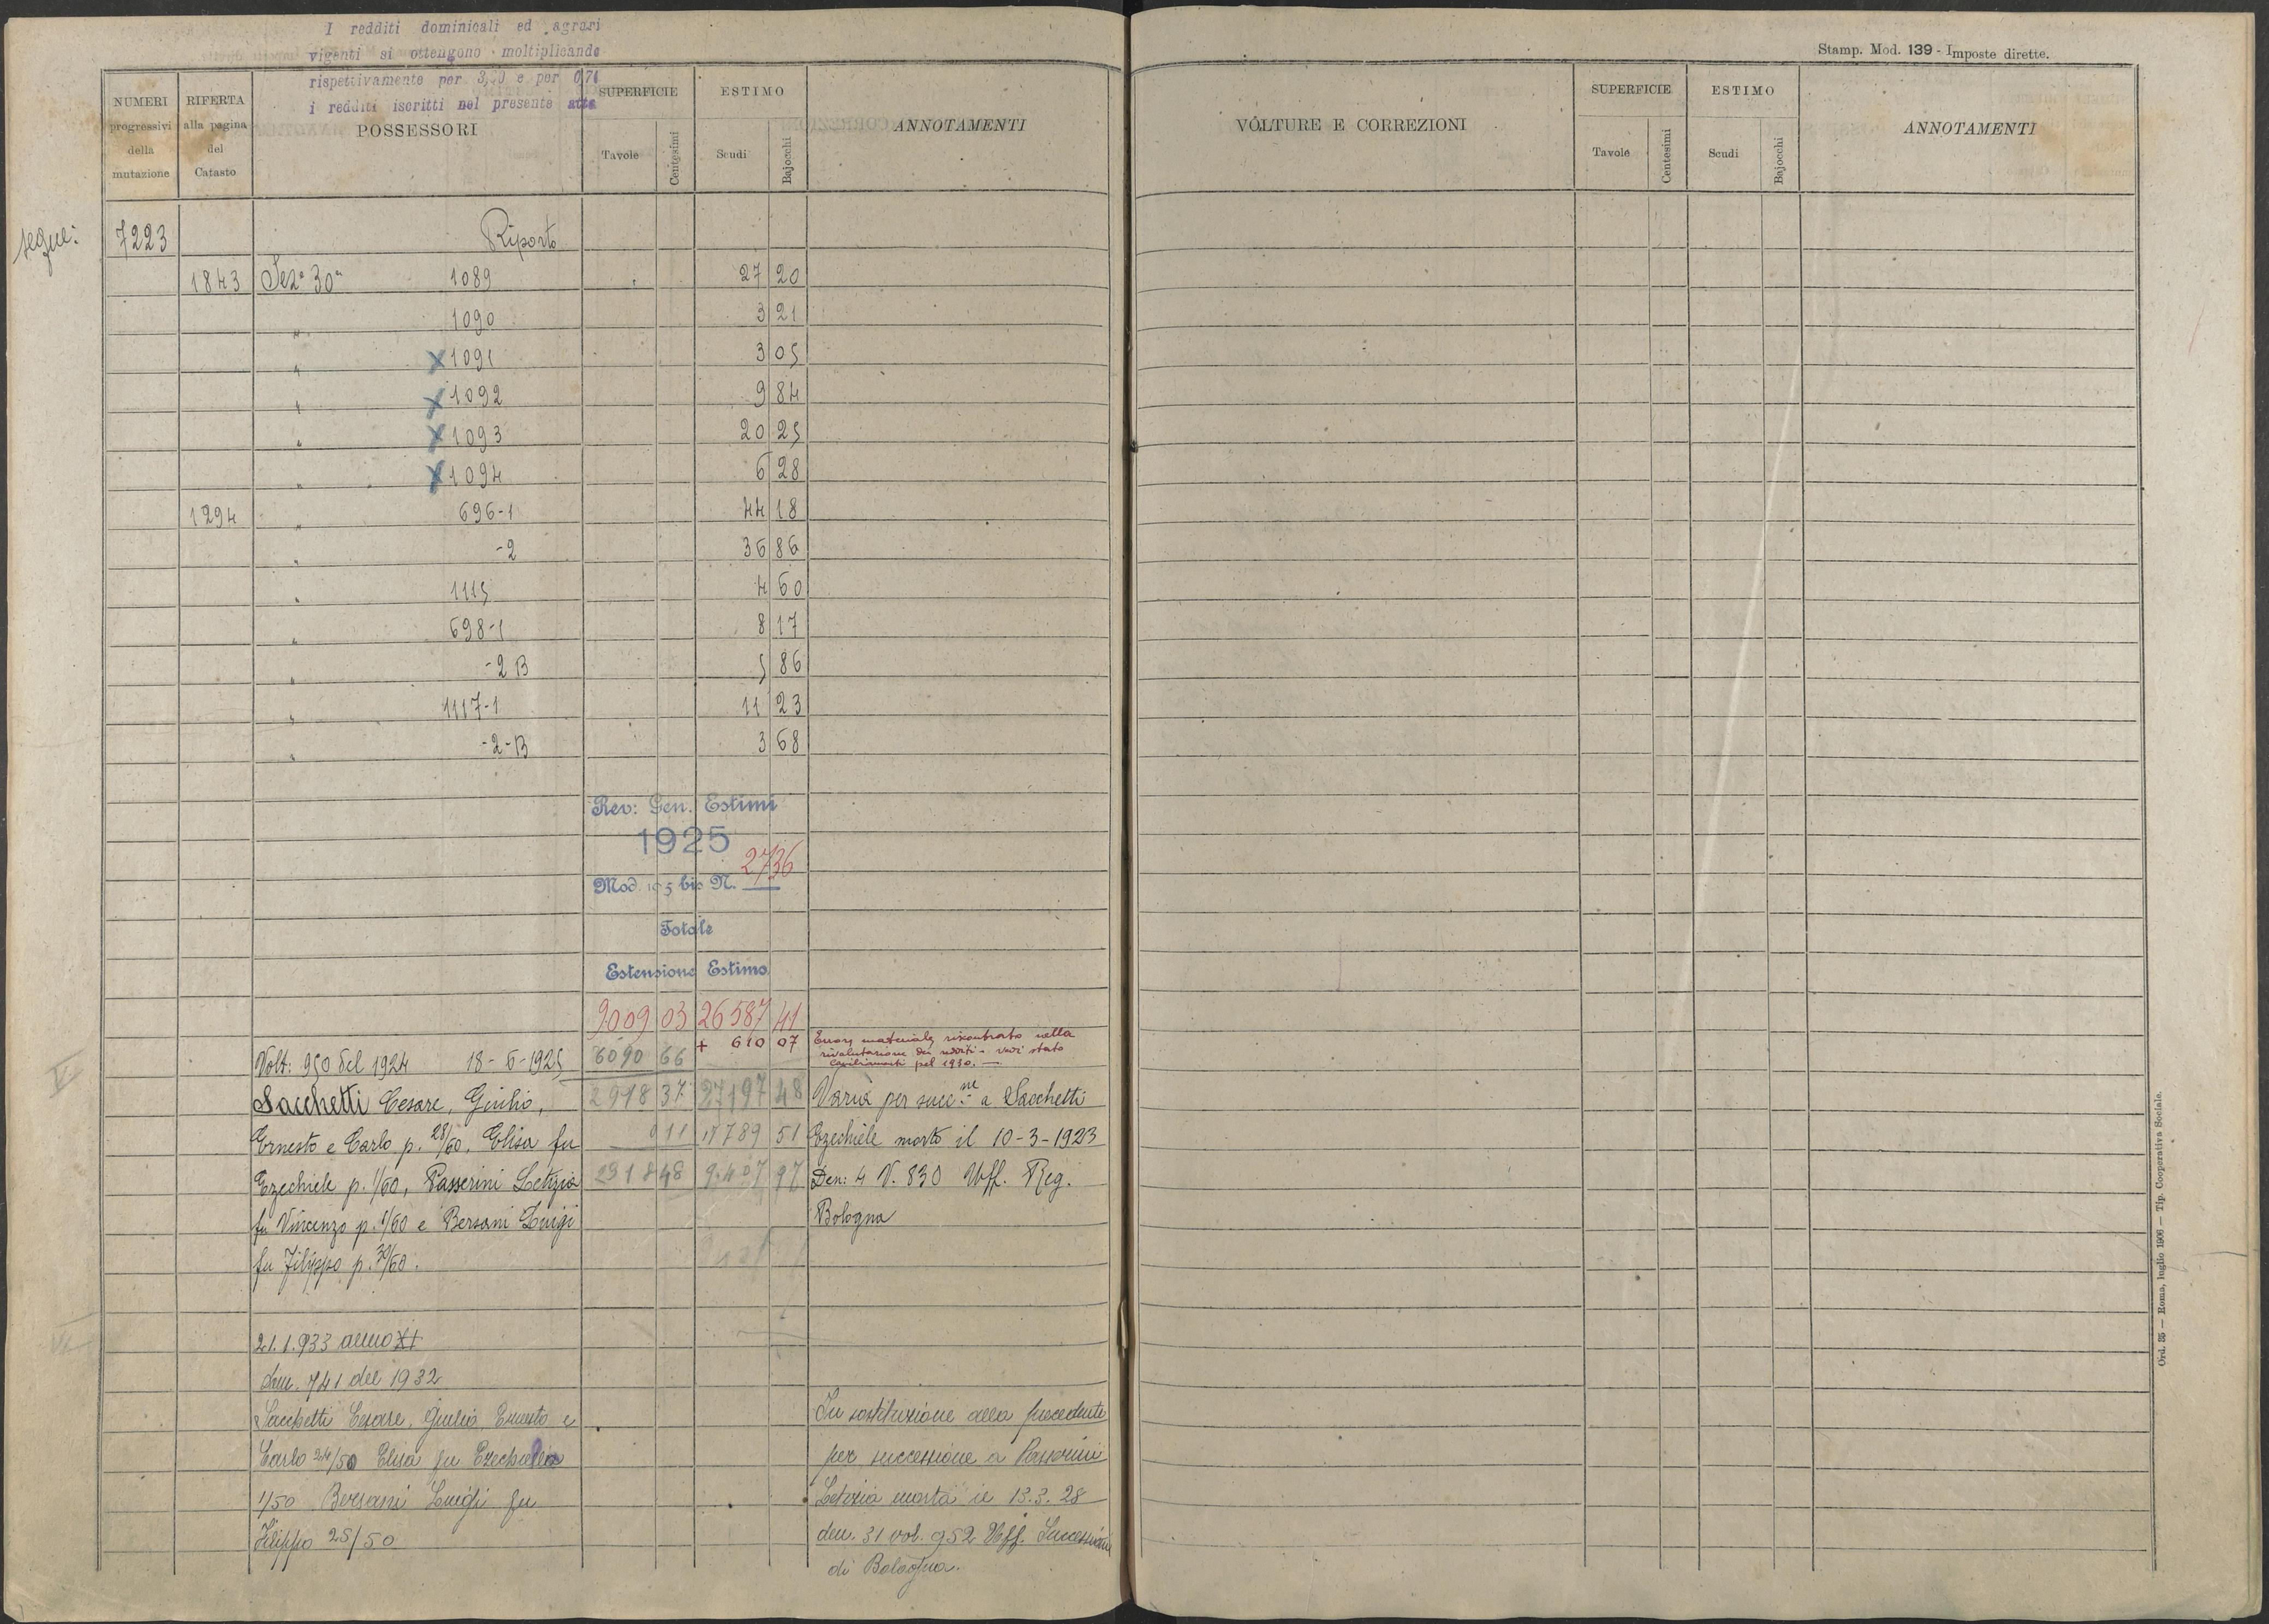 I redditi dominicali ed agrari
vigenti si ottengono moltiplicando
rispettivamente per 3,50 e per 0,71
i redditi iscritti nel presente atto
Stamp. Mod. 139 - Imposte dirette.
NUMERI progressivi della mutazione
RIFERTA alla pagina del Catasto
POSSESSORI
SUPERFICIE Tavole Centesimi
ESTIMO Scudi Bajocchi
ANNOTAMENTI
VOLTURE E CORREZIONI
SUPERFICIE Tavole Centesimi
ESTIMO Scudi Bajocchi
ANNOTAMENTI
segue: 7223 Riporto
1843 Sez.e 30a 1089 27 20
" 1090 3 21
" X 1091 3 05
" X 1092 9 84
" X 1093 20 25
" X 1094 6 28
1294 " 696-1 44 18
" -2 36 86
" 1115 4 60
" 698-1 8 17
" -2 B 5 86
" 1117-1 11 23
" -2-B 3 68
Rev: Gen. Estimi
1925
2736
Mod. 105 bis N.
Totale
Estensione Estimo
9009 03 26587 41
+ 610 07
Errore materiale riscontrato nella
rivalutazione dei redditi - vedi stato
pel 1930. —
Volt: 950 del 1924 18-6-1925 6090 66
Sacchetti Cesare, Giulio, 2918 37 27197 48 Varia per succ.ne a Sacchetti
Ernesto e Carlo p. 28/60, Elisa fu 911 17789 51 Ezechiele morto il 10-3-1923
Ezechiele p. 1/60, Passerini Letizia 2918 48 9.407 97 Den: 4 V. 830 Uff. Reg.
fu Vincenzo p. 1/60 e Bersani Luigi Bologna
fu Filippo p. 30/60.
21.1.933 anno XI
den. 741 del 1932
Sacchetti Cesare, Giulio Ernesto e In sostituzione della precedente
Carlo 24/50 Elisa fu Ezechiele per successione a Passerini
1/50 Bersani Luigi fu Letizia morta il 13.3.28
Filippo 25/50 den. 31 vol. 952 Uff. Successioni
di Bologna.
Ord. 35 — Roma, luglio 1906 — Tip. Cooperativa Sociale.